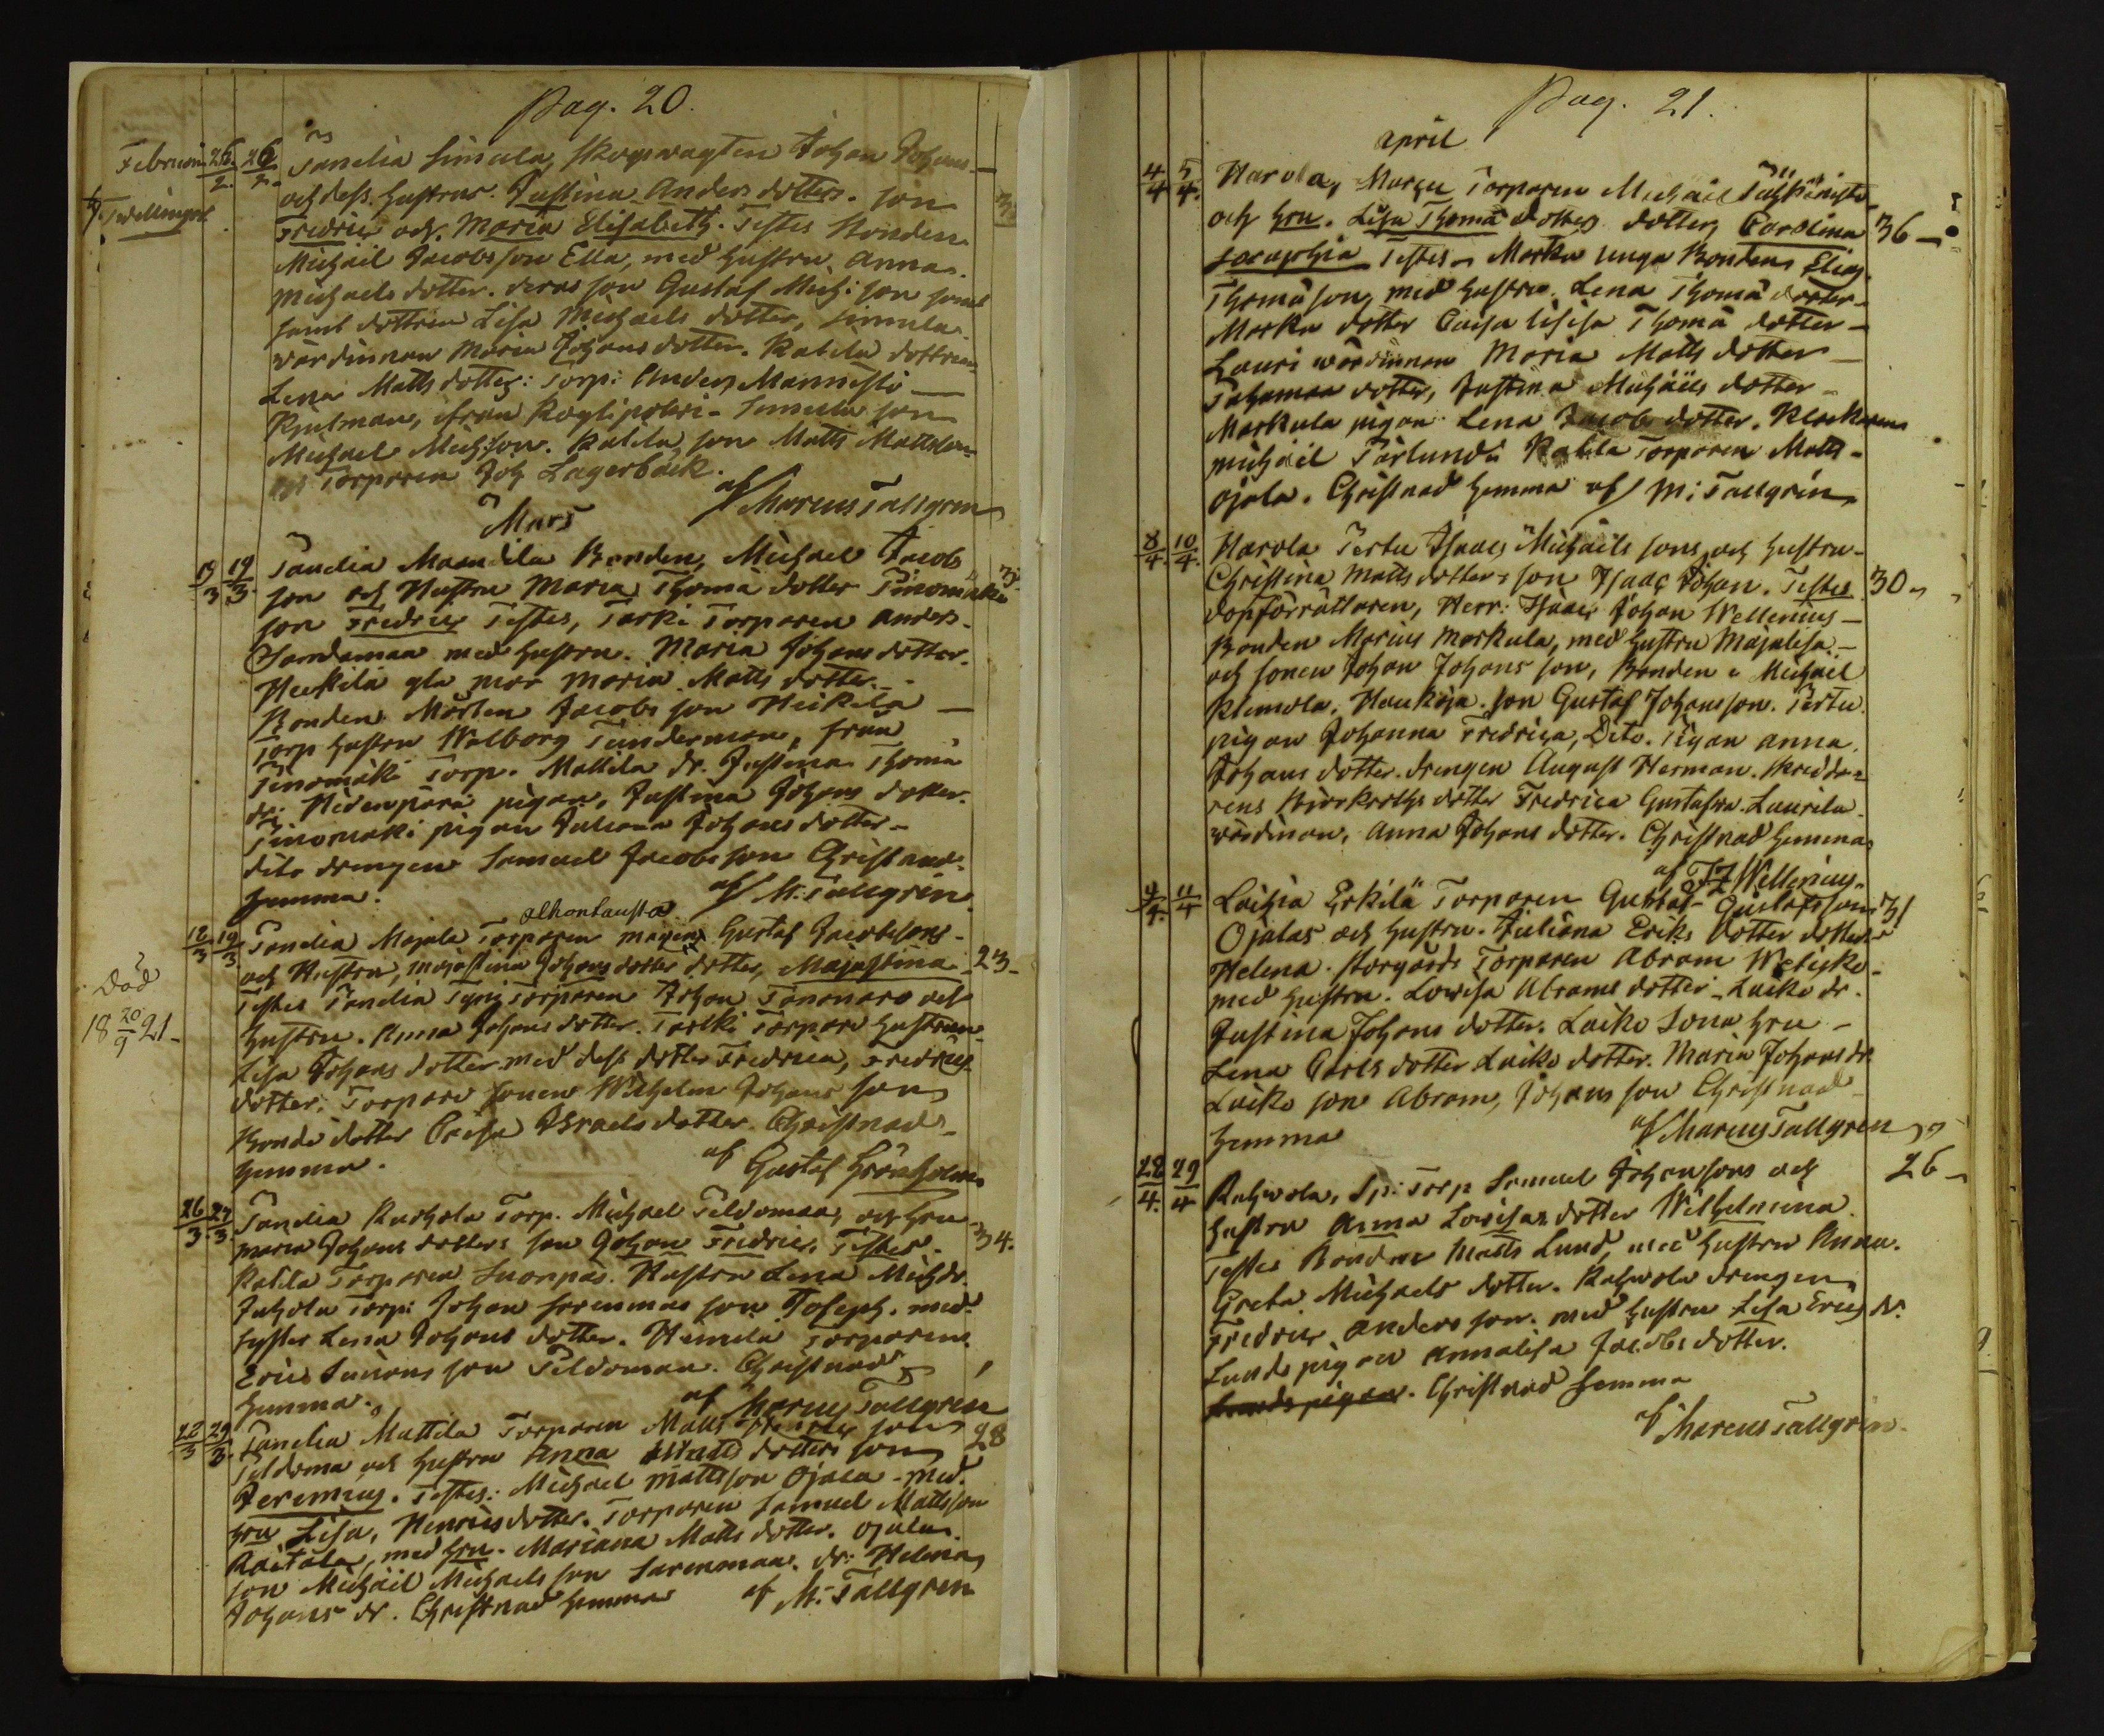 Pag. 20.
Februari 26/2. 26/2. Tandia Simula, skogvagten Johan Johans
och dess hustrus Justina Anders dotters. son
Twillingar
Fredric och Maria Elisabeth. Testes Bonden
Michael Jacobs son Ella, med hustru Anna
Michaels dotter. deras son Gustaf Mich: son samt
samt dottren Lisa Michaels dotter, Simula
wärdinnan Maria Johans dotter. Kabila dottren
Lena Matts dotter: Torp: Anders Mannistö
från Simula son
Michael Mich:son. Kabila son Matts Mattsson
Torparen Joh Lagerbäck.
af Marcus Tallgren
Mars
19/3 19/3 Tandia Mattila Bonden Michael Jacobs
son och Hustru Maria Thomä dotter Tinomäki
son Fredric Testes, Torki Torparen Anders
Sandamaa med hustru. Maria Johans dotter.
Heikilä gla mor Maria Matts dotter.
Bonden Mårten Jacobs son Heikilä
Torp hustru Walborg Tunderman, från
Tinomäki Torp. Mattila dr. Justina Thomä
dr. pigan, Justina Johans dotter.
Tinomäki pigan Juliana Johans dotter
dito drengen Samuel Jacobs son Christnad
hemma. af M. Tallgren
alhontausta
18/3 19/3 Tandia Majala Torparen Gustaf Jacobsons
och Hustru, Majastina Johans dotter dotter, Majastina 23
Död
18 20/9 21
Testes Tandia Torparen Johan och
hustru. Anna Johans dotter. Torki Torpare hustrun
Lisa Johans dotter med dess dotter Fredrica, Fredrics
dotter. Torpare sonen Wilhelm Johans son
Bonde dotter Caisa Israels dotter Christnad
hemma. af Gustaf Grönholm
26/3 27/3 Tandia Karhola Torp. Michael Peldomaa, och hru
Maria Johans dotters son Johan Fredric. Testes. 34.
Kalila Torparen Suonpäs. Hustru Lena Mich dr.
Juhola Torp: Johan Saremmas son Joseph. med
syster Lena Johans dotter. Heimilä Torparen
Eric Simons son Peldomaa. Christnad
hemma. af Marcus Tallgren
28/3 29/3 Tandia Mattila Torparen Matts son
Peldoma och hustru Anna Matts dotters son 28
Jeremias. Testes: Michael Mattsson Ojala med
hru Lisa, Henrics dotter. Torparen Samuel Mattsson
Raitala, med hru. Mariana Matts dotter. Ojala
son Michail Michaels son Saremmaa. dr: Helena
Johans dr. Christnad hemma af M. Tallgren
Pag. 21.
April
4/4 5/4. Harola, Torparen Michail
och hru. Lisa Thomä dotter dotter, Carolina 36
Seraphia Testes Marku unga Bonden Elias
Thomäson, med hustru. Lena Thomä dotter
Marku dotter Caisa lisisa Thomä dotter
Lauri wärdinnan Maria Matts dotter
dotter, Justina Michails dotter
Markula pigan Lena Jacobs dotter. Klockaren
Michail Kalila Torparen Matts
Ojala. Christnad hemma af M: Tallgren
8/4. 10/4. Harola Pertu Isaac Michails sons och hustru
Christina Matts dotters son Isaac Johan. Testes 30
dopförrättaren, Herr: Isaac Johan Wellenius
Bonden Marcus Markula, med hustru Majalisa
och sonen Johan Johans son, Bonden Michael
Klemola. Haukoja son Gustaf Johansson. Pertu
pigan Johanna Fredrica, Dito. Pigan Anna
Johans dotter. drengen August Herman. skredda
rens dotter Fredrica Gustafva. Laurila
wärdinnan, Anna Johans dotter. Christnad hemma
af I J Wellenius
9/4. 11/4 Laihia Erkilä Torparen Gustaf Gustafssons 31
Ojalas och hustru. Juliana Eriks dotter dotter
Helena. Torparen Abram
med hustru. Lowisa Abrams dotter. Laiko dr.
Justina Johans dotter. Laiko Sona hru
Lena Carls dotter Laiko dotter. Maria Johans dr.
Laiko son Abram, Johans son Christnad
hemma af Marcus Tallgren
28/4. 29/4 Kahvola, Sp: Torp Samuel Johansons och 26
hustru Anna Lowisas dotter Wilhelmina.
Testes Bonden Matts Lund, med hustru Anna
Greta Michaels dotter. Kahvola drengen
Fredric Anders son. med hustru Lisa Erics dr.
Lunds pigan Annalisa Jacobs dotter.
Christnad hemma
af Marcus Tallgren